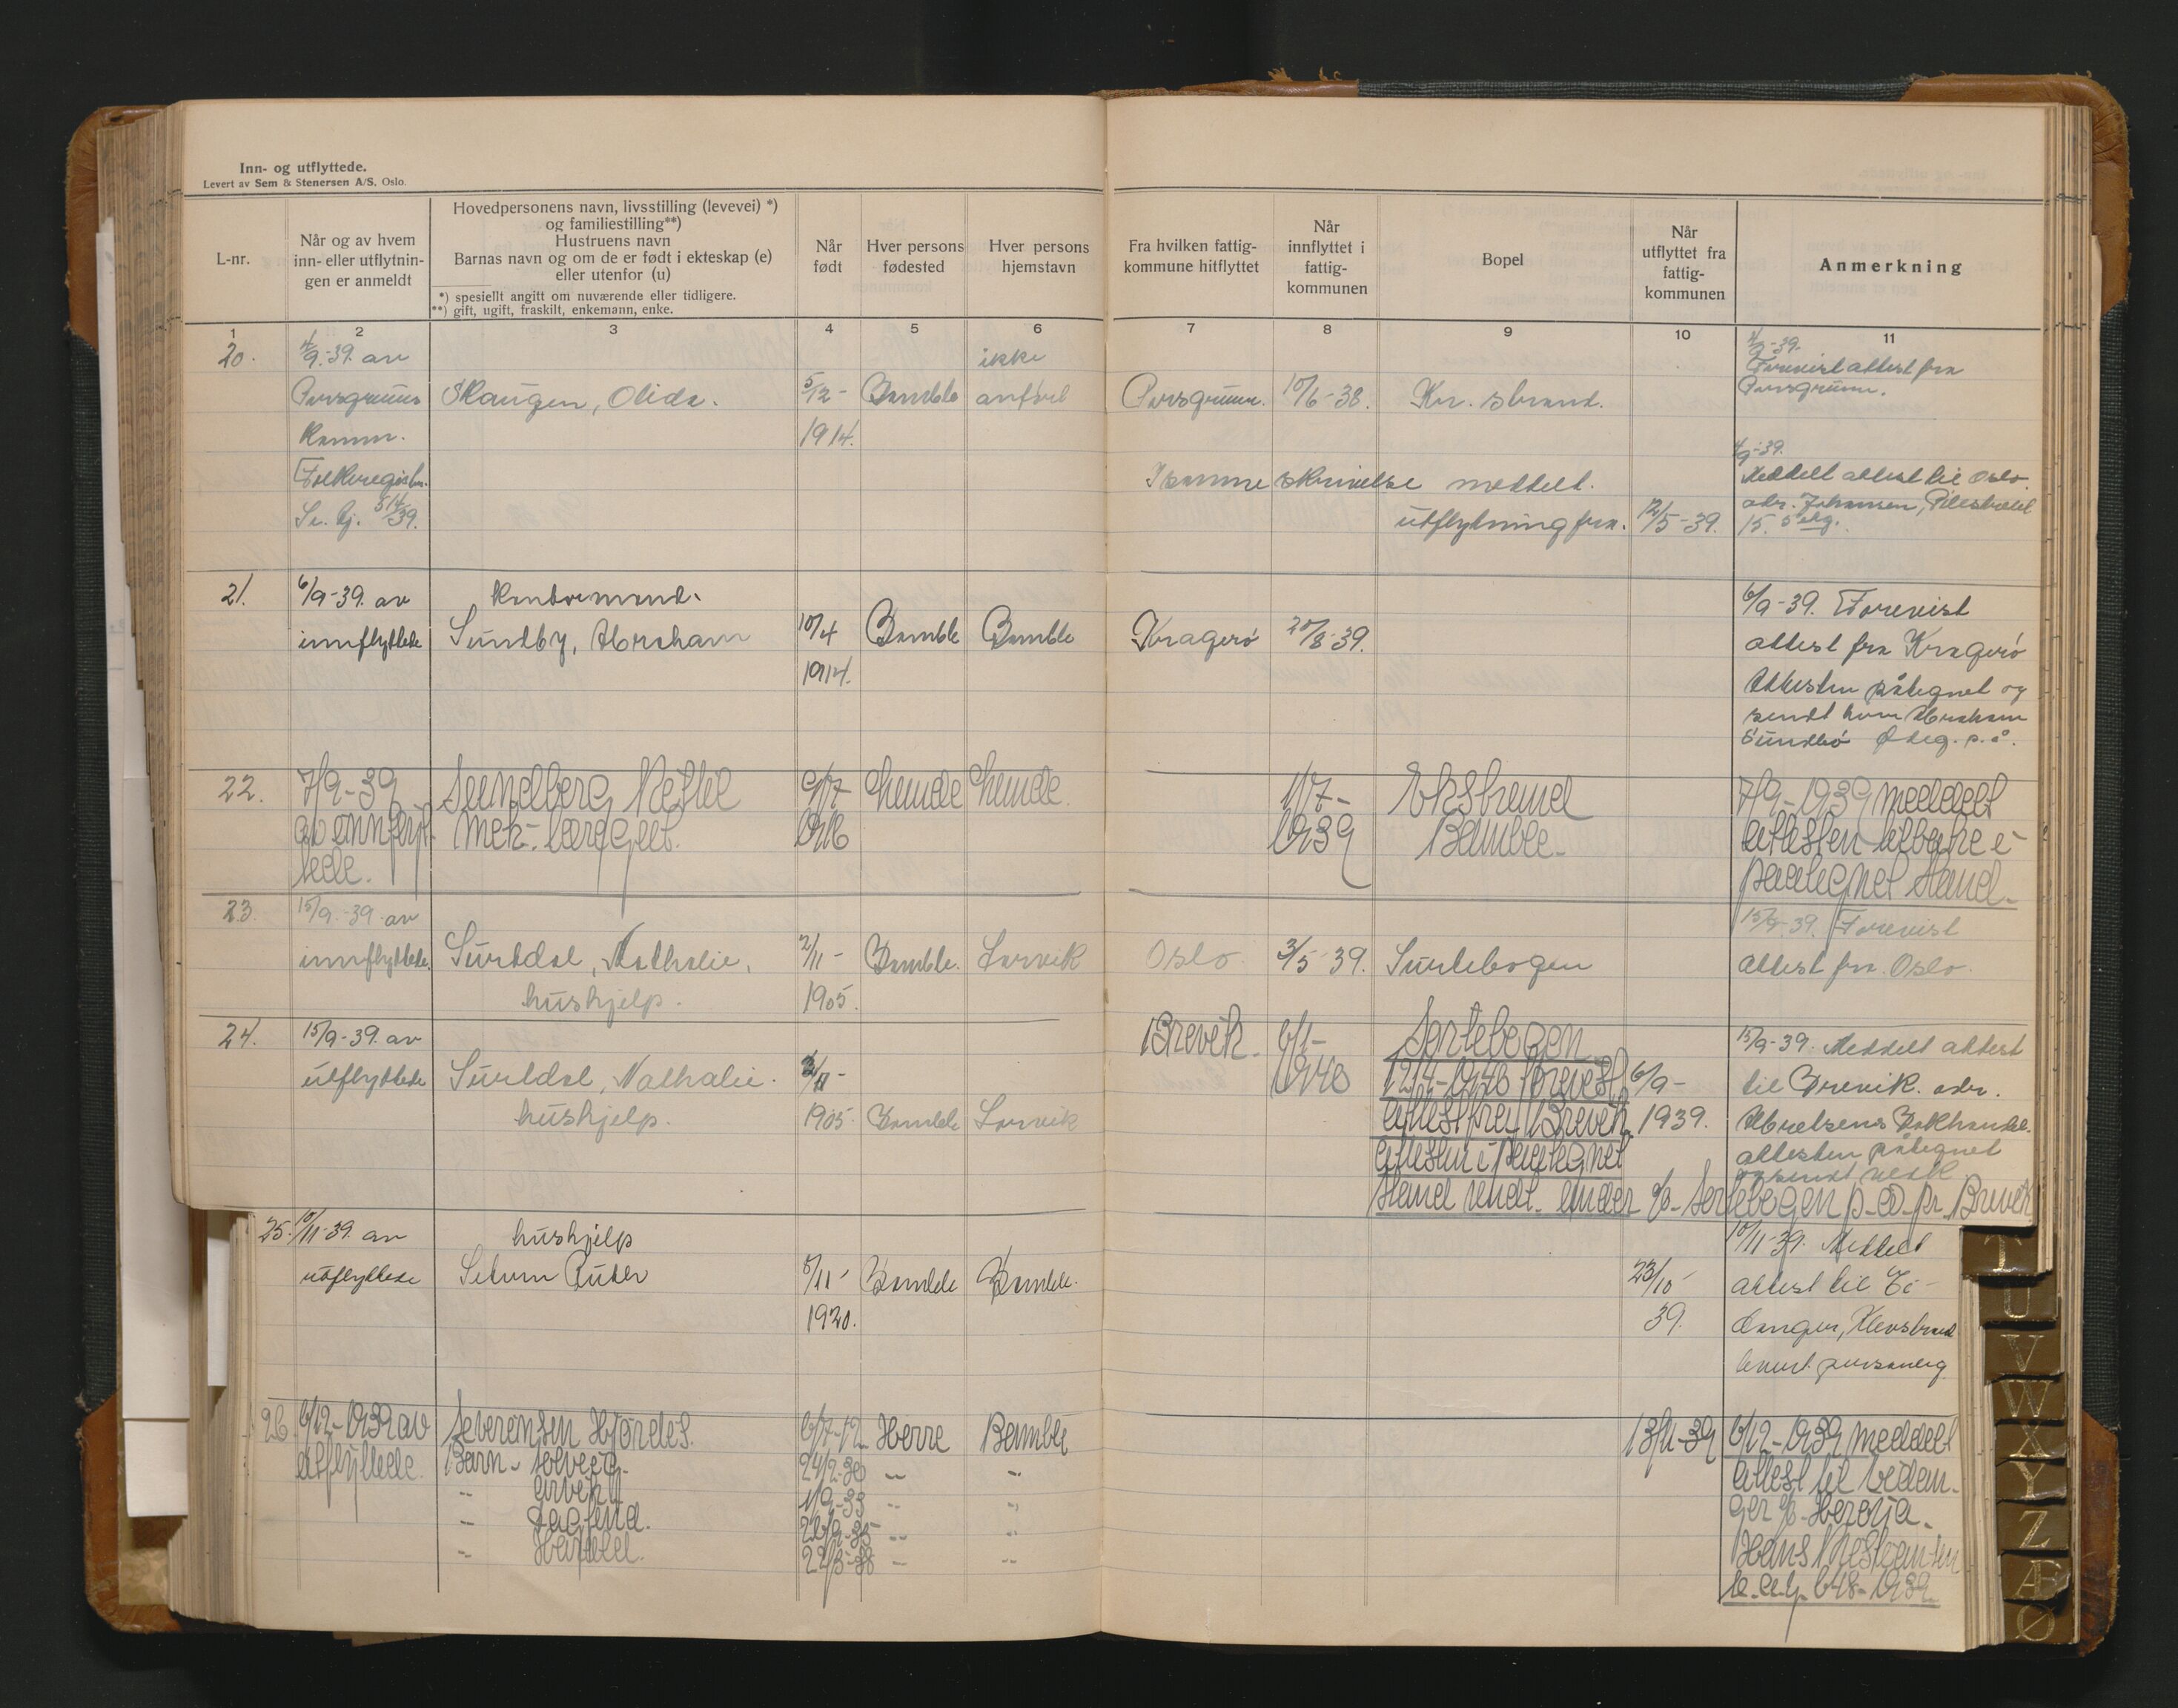 Inn- og utflyttede.
Levert av Sem & Stenersen A/S, Oslo.
L-nr.
Når og av hvem
inn- eller utflytnin-
gen er anmeldt
Hovedpersonens navn, livsstilling (levevei) *)
og familiestilling**)
Hustruens navn
Barnas navn og om de er født i ekteskap (e)
eller utenfor (u)
*) spesiellt angitt om nuværende eller tidligere.
**) gift, ugift, fraskilt, enkemann, enke.
Når
født
Hver persons
fødested
Hver persons
hjemstavn
Fra hvilken fattig-
kommune hitflyttet
Når
innflyttet i
fattig-
kommunen
Bopel
Når
utflyttet fra
fattig-
kommunen
Anmerkning
1 2 3 4 5 6 7 8 9 10 11
20. 4/9.-39. av ikke 4/9-39.
Forevist attest fra
Porsgrunns Skaugen, Olida. 5/12- Bamble anført Porsgrunn. 10/6-38. Kr. strand. Porsgrunn.
Komm. 1914. 4/9-39.
Folkeregister. I samme skrivelse meddelt. Meddelt attest til Oslo.
Se. bj. 514/39. utflytning fra. 12/5-39. adr. Johansen, Pilestredet
15. 5 etg.
21. 6/9-39. av Kontormand. 6/9-39. Forevist
innflyttede Sundby, Abraham 10/4 Bamble Bamble Kragerø 20/8-39. attest fra Kragerø
1914. Attesten påtegnet og
sendt herr Abraham
Sundbø
22. 7/9-39 Sundberg Kettil 9/7- Lunde Lunde. 1/7- Ekstrand 7/9-1939 meddelt
av innflyt- mek. læregutt. 1916 1939 Bamble. attesten tilbake i
tede. paategnet stand.
23. 15/9.-39. av 15/9-39. Forevist
innflyttede. Surtdal, Nathalie, 2/11- Bamble. Larvik Oslo. 3/5-39. Surtebogen attest fra Oslo.
hushjelp. 1905.
24. 15/9-39. av Brevik. 6/1- Sortebogen 15/9-39. Meddelt attest
utflyttede Surtdal, Nathalie. 2/11- 1940 12/4-1940 forevist 6/9- til Brevik. adr.
hushjelp. 1905 Bamble Larvik attest fra Brevik. 1939. Abrelsens Bokhandel.
attesten i paategnet attesten påtegnet
stand sendt. under c/o Sortebogen p.å. pr. Brevik
25. 10/11-39. av hushjelp 10/11-39. Meddelt
utflyttede 5/11- Bamble Bamble. 23/10- attest til Ei-
1920. 39. danger,
26 6/12-1939 av Severinsen Hjørdis. 6/7-12 Herre Bamble 13/11-39 6/12-1939 meddelt
utflyttede. Barn - Solveig. 24/2-30 - " - attest til Eidan-
- " - 1/9-33 - " - ger c/o Herøya.
- " - Dagfind. 26/9-35 - " - Hans Kristiansen
- " - Harald. 22/3-38 - " - 648-1939.
T
U
V
W
X
Y
Z
Æ
Ø